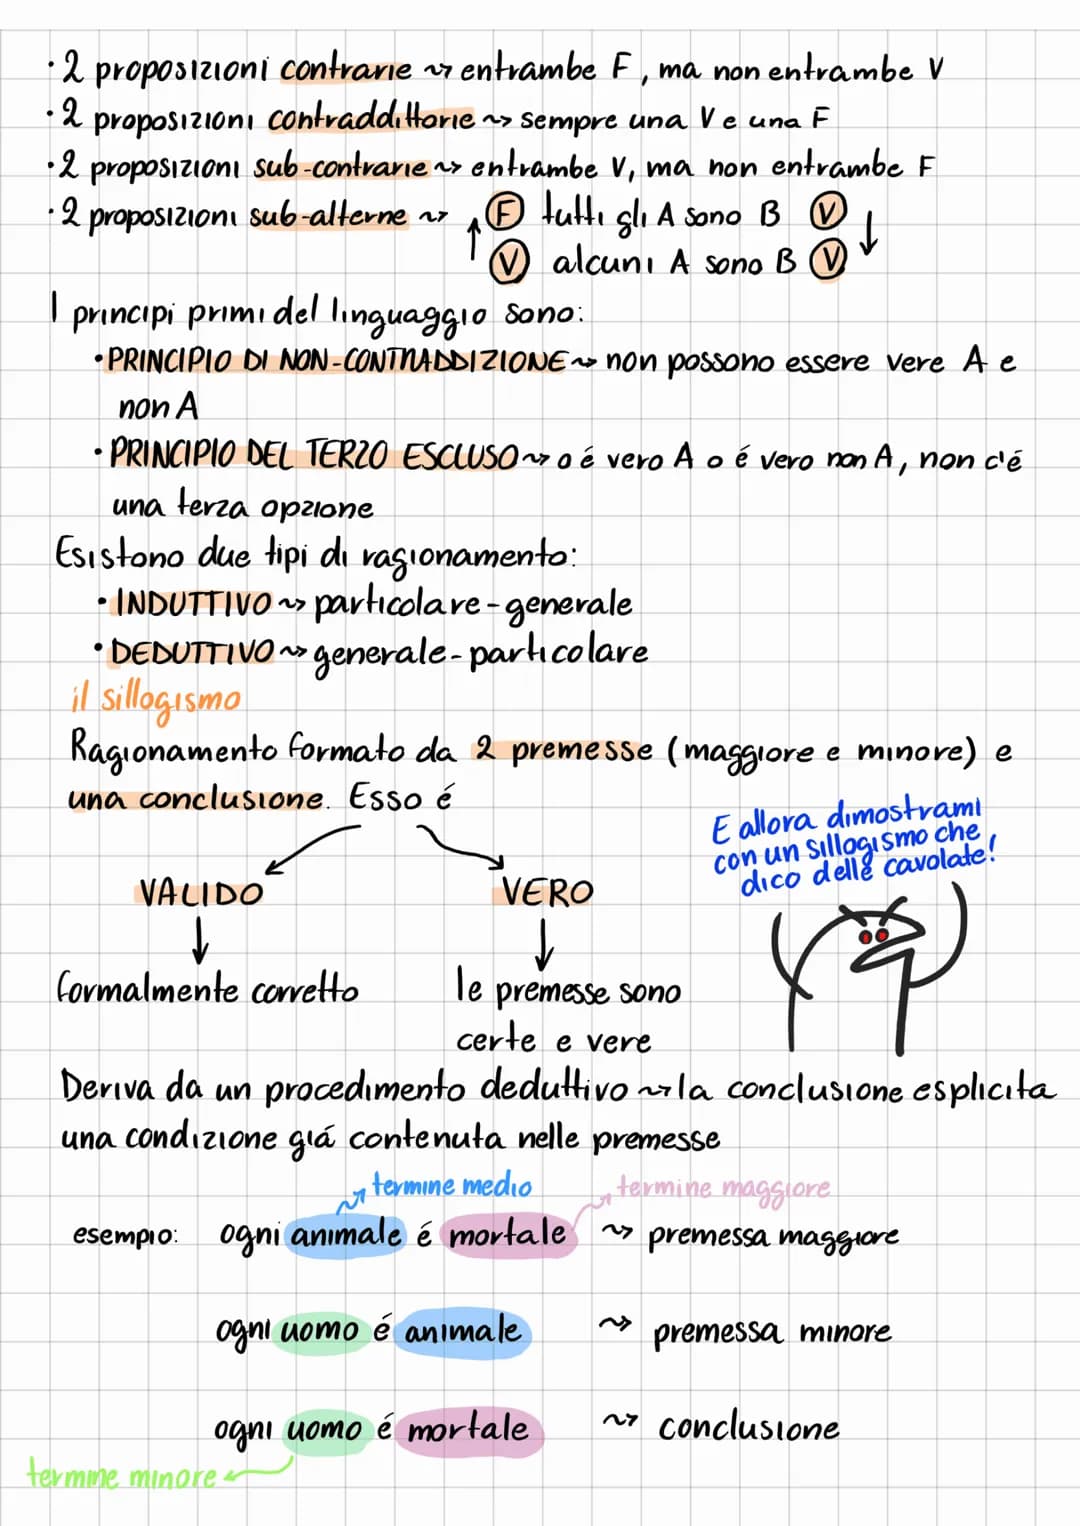 ·2 proposizioni contrarie ⇝ entrambe F, ma non entrambe V
·2 proposizioni contraddittorie ⇝ sempre una V e una F
·2 proposizioni sub-contrarie ⇝ entrambe V, ma non entrambe F
·2 proposizioni sub-alterne ⇝ ↑ F tutti gli A sono B V ↓
V alcuni A sono B V
I principi primi del linguaggio sono:
·PRINCIPIO DI NON-CONTRADDIZIONE ⇝ non possono essere vere A e
non A
·PRINCIPIO DEL TERZO ESCLUSO ⇝ o é vero A o é vero non A, non c'é
una terza opzione
Esistono due tipi di ragionamento:
·INDUTTIVO ⇝ particolare-generale
·DEDUTTIVO ⇝ generale-particolare
il sillogismo
Ragionamento formato da 2 premesse (maggiore e minore) e
una conclusione. Esso é
E allora dimostrami
con un sillogismo che
dico delle cavolate!
VALIDO VERO
↓ ↓
formalmente corretto le premesse sono
certe e vere
Deriva da un procedimento deduttivo ⇝ la conclusione esplicita
una condizione giá contenuta nelle premesse
termine medio termine maggiore
esempio: ogni animale é mortale ⇝ premessa maggiore
ogni uomo é animale ⇝ premessa minore
ogni uomo é mortale ⇝ conclusione
termine minore